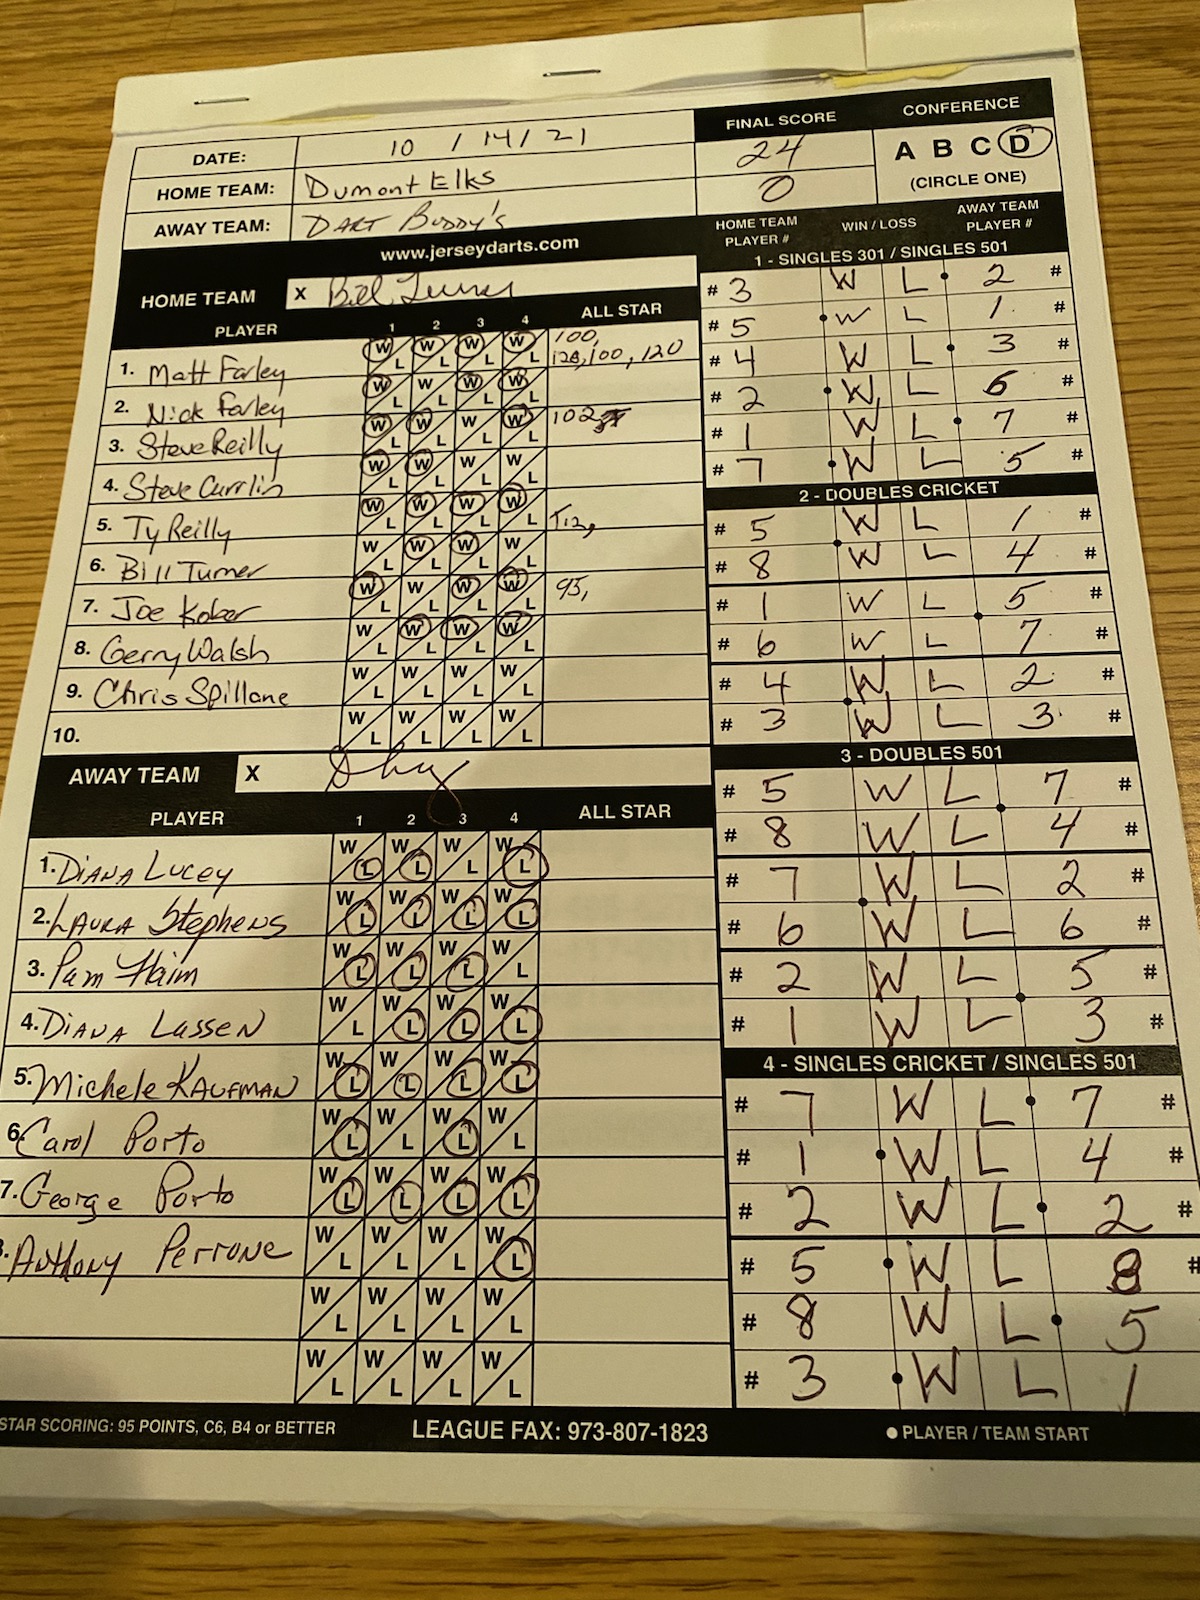 DATE: 10 / 14 / 21
HOME TEAM: Dumont Elks
AWAY TEAM: DART BUDDY'S
FINAL SCORE
24
0
CONFERENCE
A B C D
(CIRCLE ONE)
www.jerseydarts.com
HOME TEAM X
PLAYER 1 2 3 4 ALL STAR
1. Matt Farley W L W L W L W L 100, 120, 100, 120
2. Nick Farley W L W L W L W L
3. Steve Reilly W L W L W L W L 102
4. Steve Currlin W L W L W L W L
5. Ty Reilly W L W L W L W L
6. Bill Turner W L W L W L W L
7. Joe Kober W L W L W L W L 95,
8. Gerry Walsh W L W L W L W L
9. Chris Spillane W L W L W L W L
10. W L W L W L W L
AWAY TEAM X
PLAYER 1 2 3 4 ALL STAR
1. DIANA LUCEY W L W L W L W L
2. LAURA Stephens W L W L W L W L
3. Pam Haim W L W L W L W L
4. DIANA LASSEN W L W L W L W L
5. Michele KAUFMAN W L W L W L W L
6. Carol Porto W L W L W L W L
7. George Porto W L W L W L W L
Anthony Perrone W L W L W L W L
W L W L W L W L
W L W L W L W L
HOME TEAM PLAYER # WIN / LOSS AWAY TEAM PLAYER #
1 - SINGLES 301 / SINGLES 501
# 3 W L 2 #
# 5 W L 1 #
# 4 W L 3 #
# 2 W L 6 #
# 1 W L 7 #
# 7 W L 5 #
2 - DOUBLES CRICKET
# 5 W L 1 #
# 8 W L 4 #
# 1 W L 5 #
# 6 W L 7 #
# 4 W L 2 #
# 3 W L 3 #
3 - DOUBLES 501
# 5 W L 7 #
# 8 W L 4 #
# 7 W L 2 #
# 6 W L 6 #
# 2 W L 5 #
# 1 W L 3 #
4 - SINGLES CRICKET / SINGLES 501
# 7 W L 7 #
# 1 W L 4 #
# 2 W L 2 #
# 5 W L 8 #
# 8 W L 5
# 3 W L 1
STAR SCORING: 95 POINTS, C6, B4 or BETTER
LEAGUE FAX: 973-807-1823
● PLAYER / TEAM START